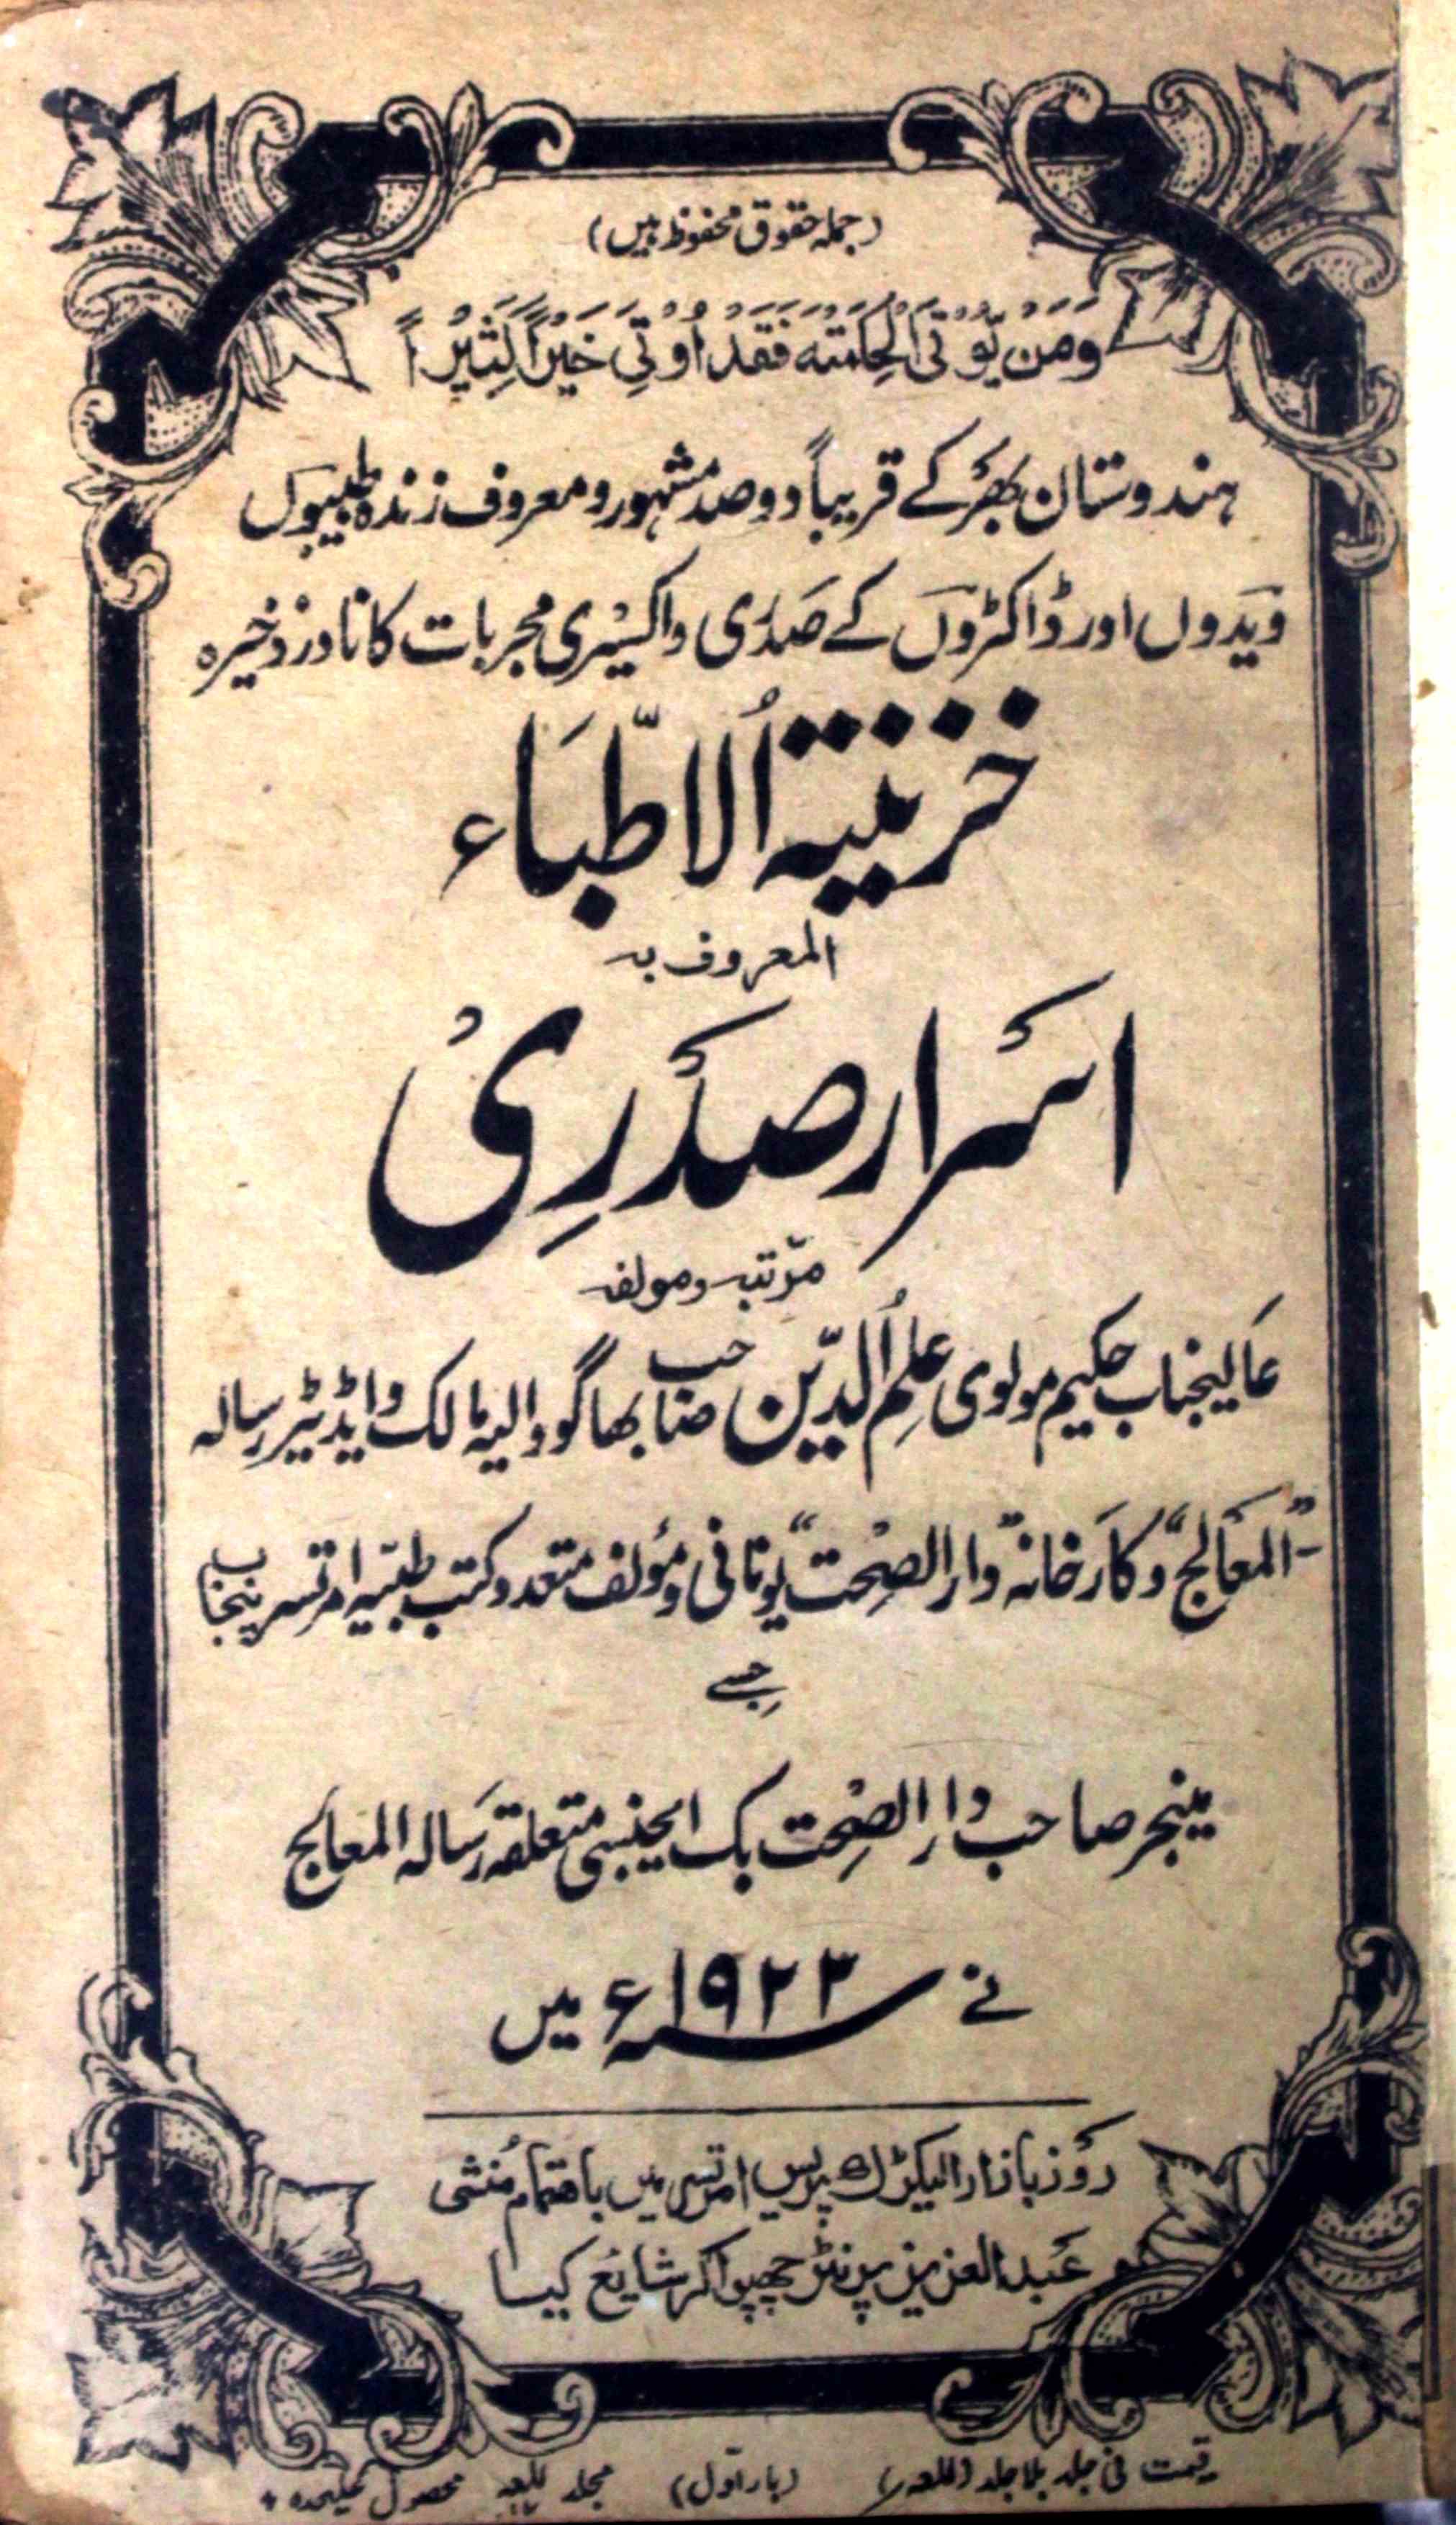 (جملہ حقوق محفوظ ہیں)
وَمَنْ يُّوْتَى الْحِكْمَتَهَ فَقَدْ اُوْتِيَ خَيْراً كَثِيْراً
ہندوستان بھر کے قریباً دوصد مشہور و معروف زندہ طبیبوں
ویدوں اور ڈاکٹروں کے صدری و اکسیری مجربات کا نادر ذخیرہ
خزینۃ الاطباء
المعروف بہ
اسرار صدری
مرتبہ و مولفہ
عالیجناب حکیم مولوی علم الدین صاحب بھاگووالیہ مالک و ایڈیٹر رسالہ
"المعالج" و کارخانہ "دارالصحت" یونانی و مؤلف متعدد کتب طبیہ امرتسر پنجاب
جسے
مینجر صاحب دارالصحت بک ایجنسی متعلقہ رسالہ المعالج
نے سنہ ۱۹۲۳ء میں
روز بازار الیکٹرک پریس امرتسر میں باہتمام منشی
عبدالعزیز پرنٹر چھپوا کر شایع کیا
قیمت فی جلد بلا جلد (بار اول) مجلد محصول علیحدہ +